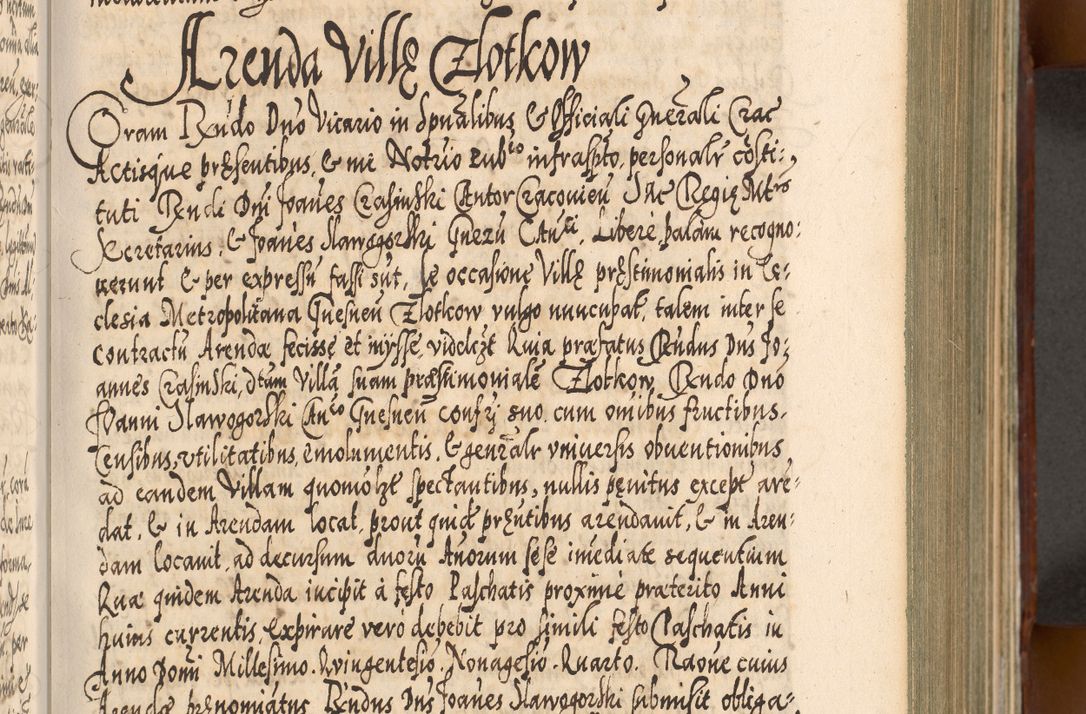 Arenda Villę Zlotkow
Coram Rndo Dno Vicario in Spualibus & Officiali Gnerali Crac
Actisque pręsentibus, & me Notrio Pubco infrascpto, personalr cōsti-
tuti Rndi Dni Joanes Crasinski Cantor Cracovien Sac Regię Mtis
Secretarius, & Joanes Slawogorski Gnezn Canci, Libere palam recogno-
verunt & per expressu fassi sūt, se occasione Villę prestimonialis in Ec-
clesia Metropolitana Gnesnen Zlotkow vulgo nuncupat, talem inter se
contractū Arendæ fecisse et inysse, videlczt Quia præfatus Rndus Dns Jo-
annes Crasinski, dtam Villā suam præstimonialē Zlotkow Rndo Dno
Joanni Slawogorski Canco Gnesnen confri suo cum omibus fructibus,
Censibus, utilitatibus, emolumentis, & generalr universis obventionibus
ad eandem Villam quomolzt spectantibus, nullis penitus except are-
dat, & in Arendam locat, prout quidē prentibus arendavit, & in Aren-
dam locavit, ad decursum duorū Anorum sese imediate sequentium
Quæ quidem Arenda incipit à festo Paschatis proxime præterito Anni
huius currentis, Expirare vero debebit pro simili festo Paschatis in
Anno Domi Millesimo Quingentesio Nonagesio Quarto. Raone cuius
Arendæ prenomiatus Rndus Dns Joanes Slawogorski submisit obliga-